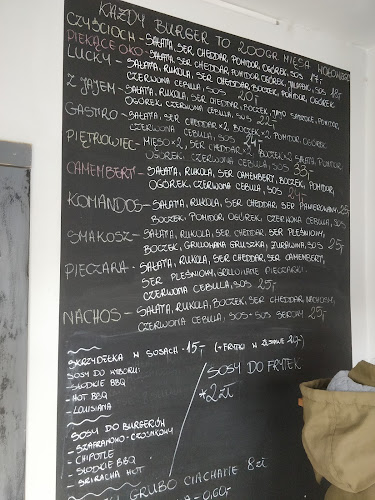 KAŻDY BURGER TO 200GR MIĘSA WOŁOWEGO
CZYŚCIOCH - SAŁATA, SER CHEDDAR, POMIDOR, OGÓREK, SOS 17,-
PIEKĄCE OKO - SAŁATA, SER CHEDDAR, POMIDOR, OGÓREK, JALAPEÑO, SOS 18zł
LUCKY - SAŁATA, RUKOLA, SER CHEDDAR, BOCZEK, POMIDOR, OGÓREK
CZERWONA CEBULA, SOS 20zł
Z JAJEM - SAŁATA, RUKOLA, SER CHEDDAR, BOCZEK, JAJO SADZONE, POMIDOR,
OGÓREK, CZERWONA CEBULA, SOS 22zł
GASTRO - SAŁATA, SER CHEDDAR x2, BOCZEK x2 POMIDOR, OGÓREK
CZERWONA CEBULA, SOS 24zł
PIĘTROWIEC - MIĘSO x2, SER CHEDDAR x2, BOCZEK x2 SAŁATA, POMIDOR
OGÓREK, CZERWONA CEBULA, SOS 33,-
CAMEMBERT - SAŁATA, RUKOLA, SER CAMEMBERT, BOCZEK, POMIDOR,
OGÓREK, CZERWONA CEBULA, SOS
KOMANDOS - SAŁATA, RUKOLA, SER CHEDDAR, SER PANIEROWANY
BOCZEK, POMIDOR, OGÓREK, CZERWONA CEBULA, SOS
SMAKOSZ - SAŁATA, RUKOLA, SER CHEDDAR, SER PLEŚNIOWY,
BOCZEK, GRILLOWANA GRUSZKA, ŻURAWINA, SOS 25,-
PIECZARA - SAŁATA, RUKOLA, SER CHEDDAR, SER CAMEMBERT,
SER PLEŚNIOWY, GRILLOWANE PIECZARKI
CZERWONA CEBULA, SOS 25,-
NACHOS - SAŁATA, RUKOLA, BOCZEK, SER CHEDDAR, NACHOSY,
CZERWONA CEBULA, SOS + SOS SEROWY 25,-
SKRZYDEŁKA W SOSACH - 15,- (+ FRYTKI W ZESTAWIE
SOSY DO WYBORU:
- SŁODKIE BBQ
- HOT BBQ
- LOUISIANA
SOSY DO FRYTEK
*2 zł
SOSY DO BURGERÓW
- SZAFRANOWO - CZOSNKOWY
- CHIPOTLE
- SŁODKIE BBQ
- SRIRACHA HOT
GRUBO CIACHANE 8zł
- 0,60-